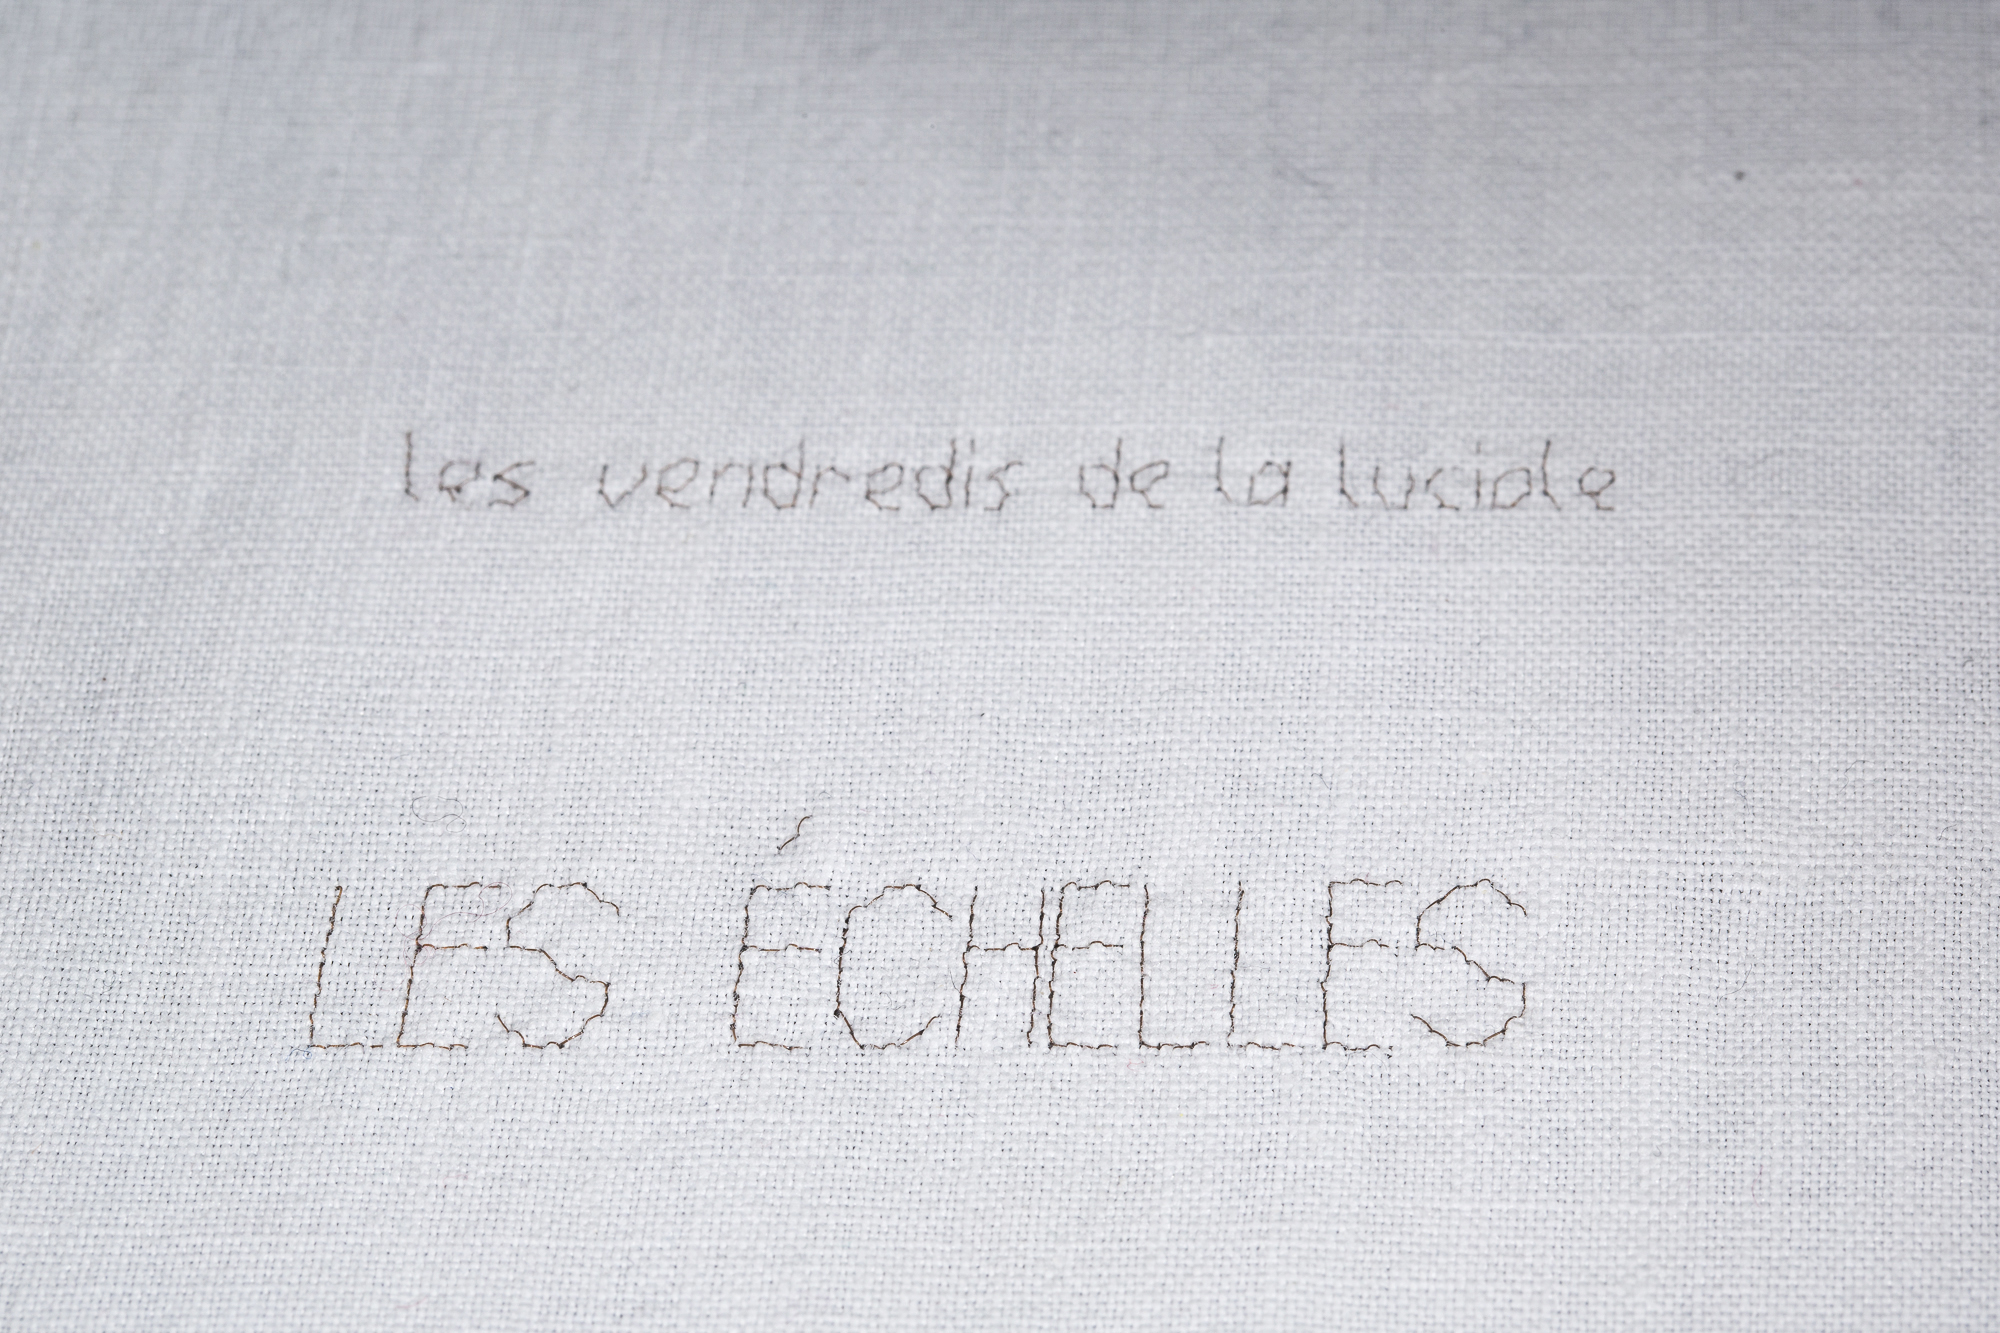 les vendredis de la luciole
LES ÉCHELLES